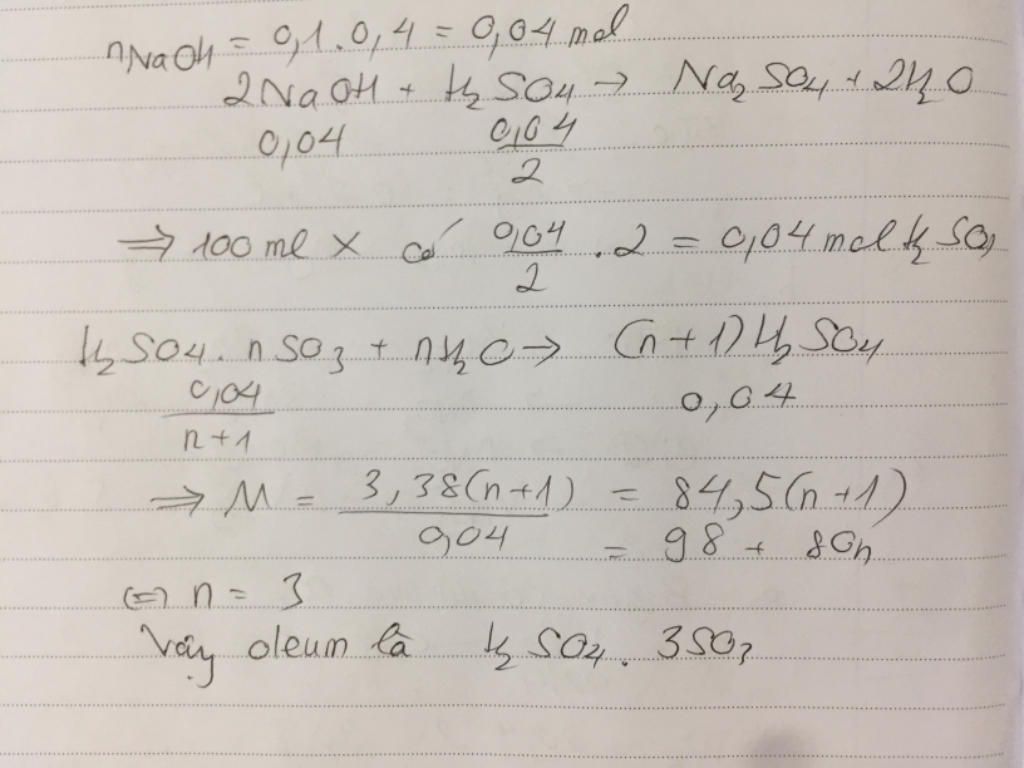 nNaOH = 0,1.0,4 = 0,04 mol
2NaOH + H2SO4 → Na2SO4 + 2H2O
0,04 0,04/2
⇒ 100 ml X có 0,04/2 . 2 = 0,04 mol H2SO4
H2SO4.nSO3 + nH2O → (n+1)H2SO4
0,04/n+1 0,04
⇒ M = 3,38(n+1)/0,04 = 84,5(n+1)
= 98 + 80n
⇔ n = 3
Vậy oleum là H2SO4.3SO3